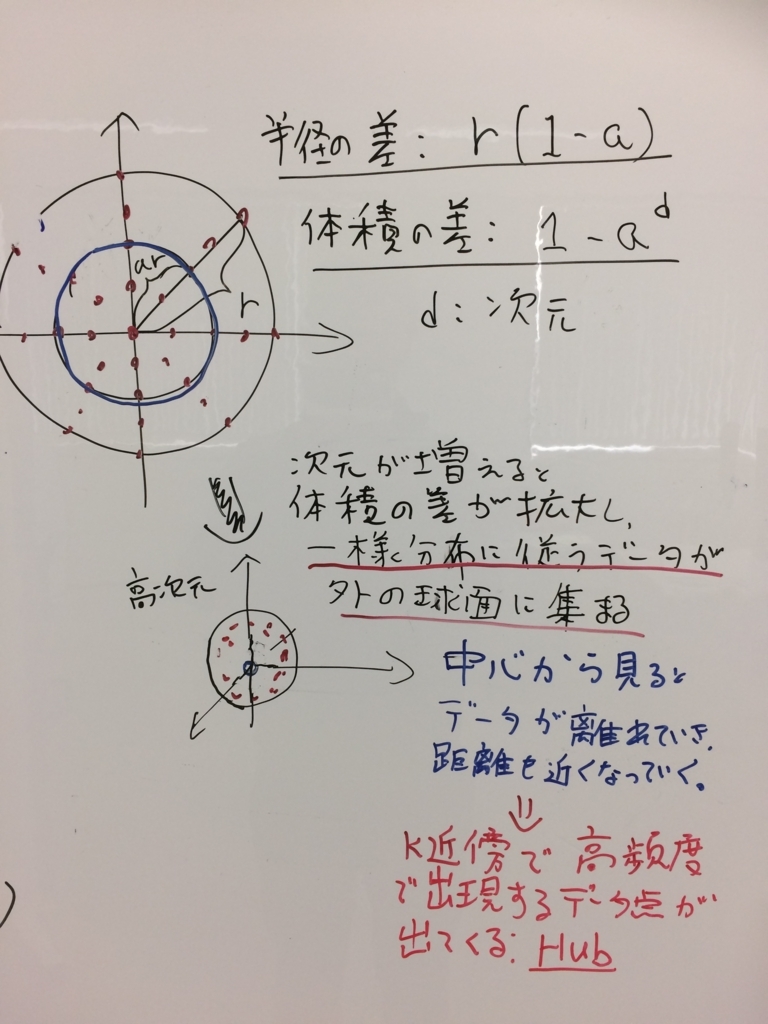 半径の差: r(1-a)
体積の差: 1-a^d
d:次元
ar
r
次元が増えると
体積の差が拡大し、
一様分布に従うデータが
外の球面に集まる
高次元
中心から見ると
データが離れていき、
距離も近くなっていく。
K近傍で高頻度
で出現するデータ点が
出てくる:Hub